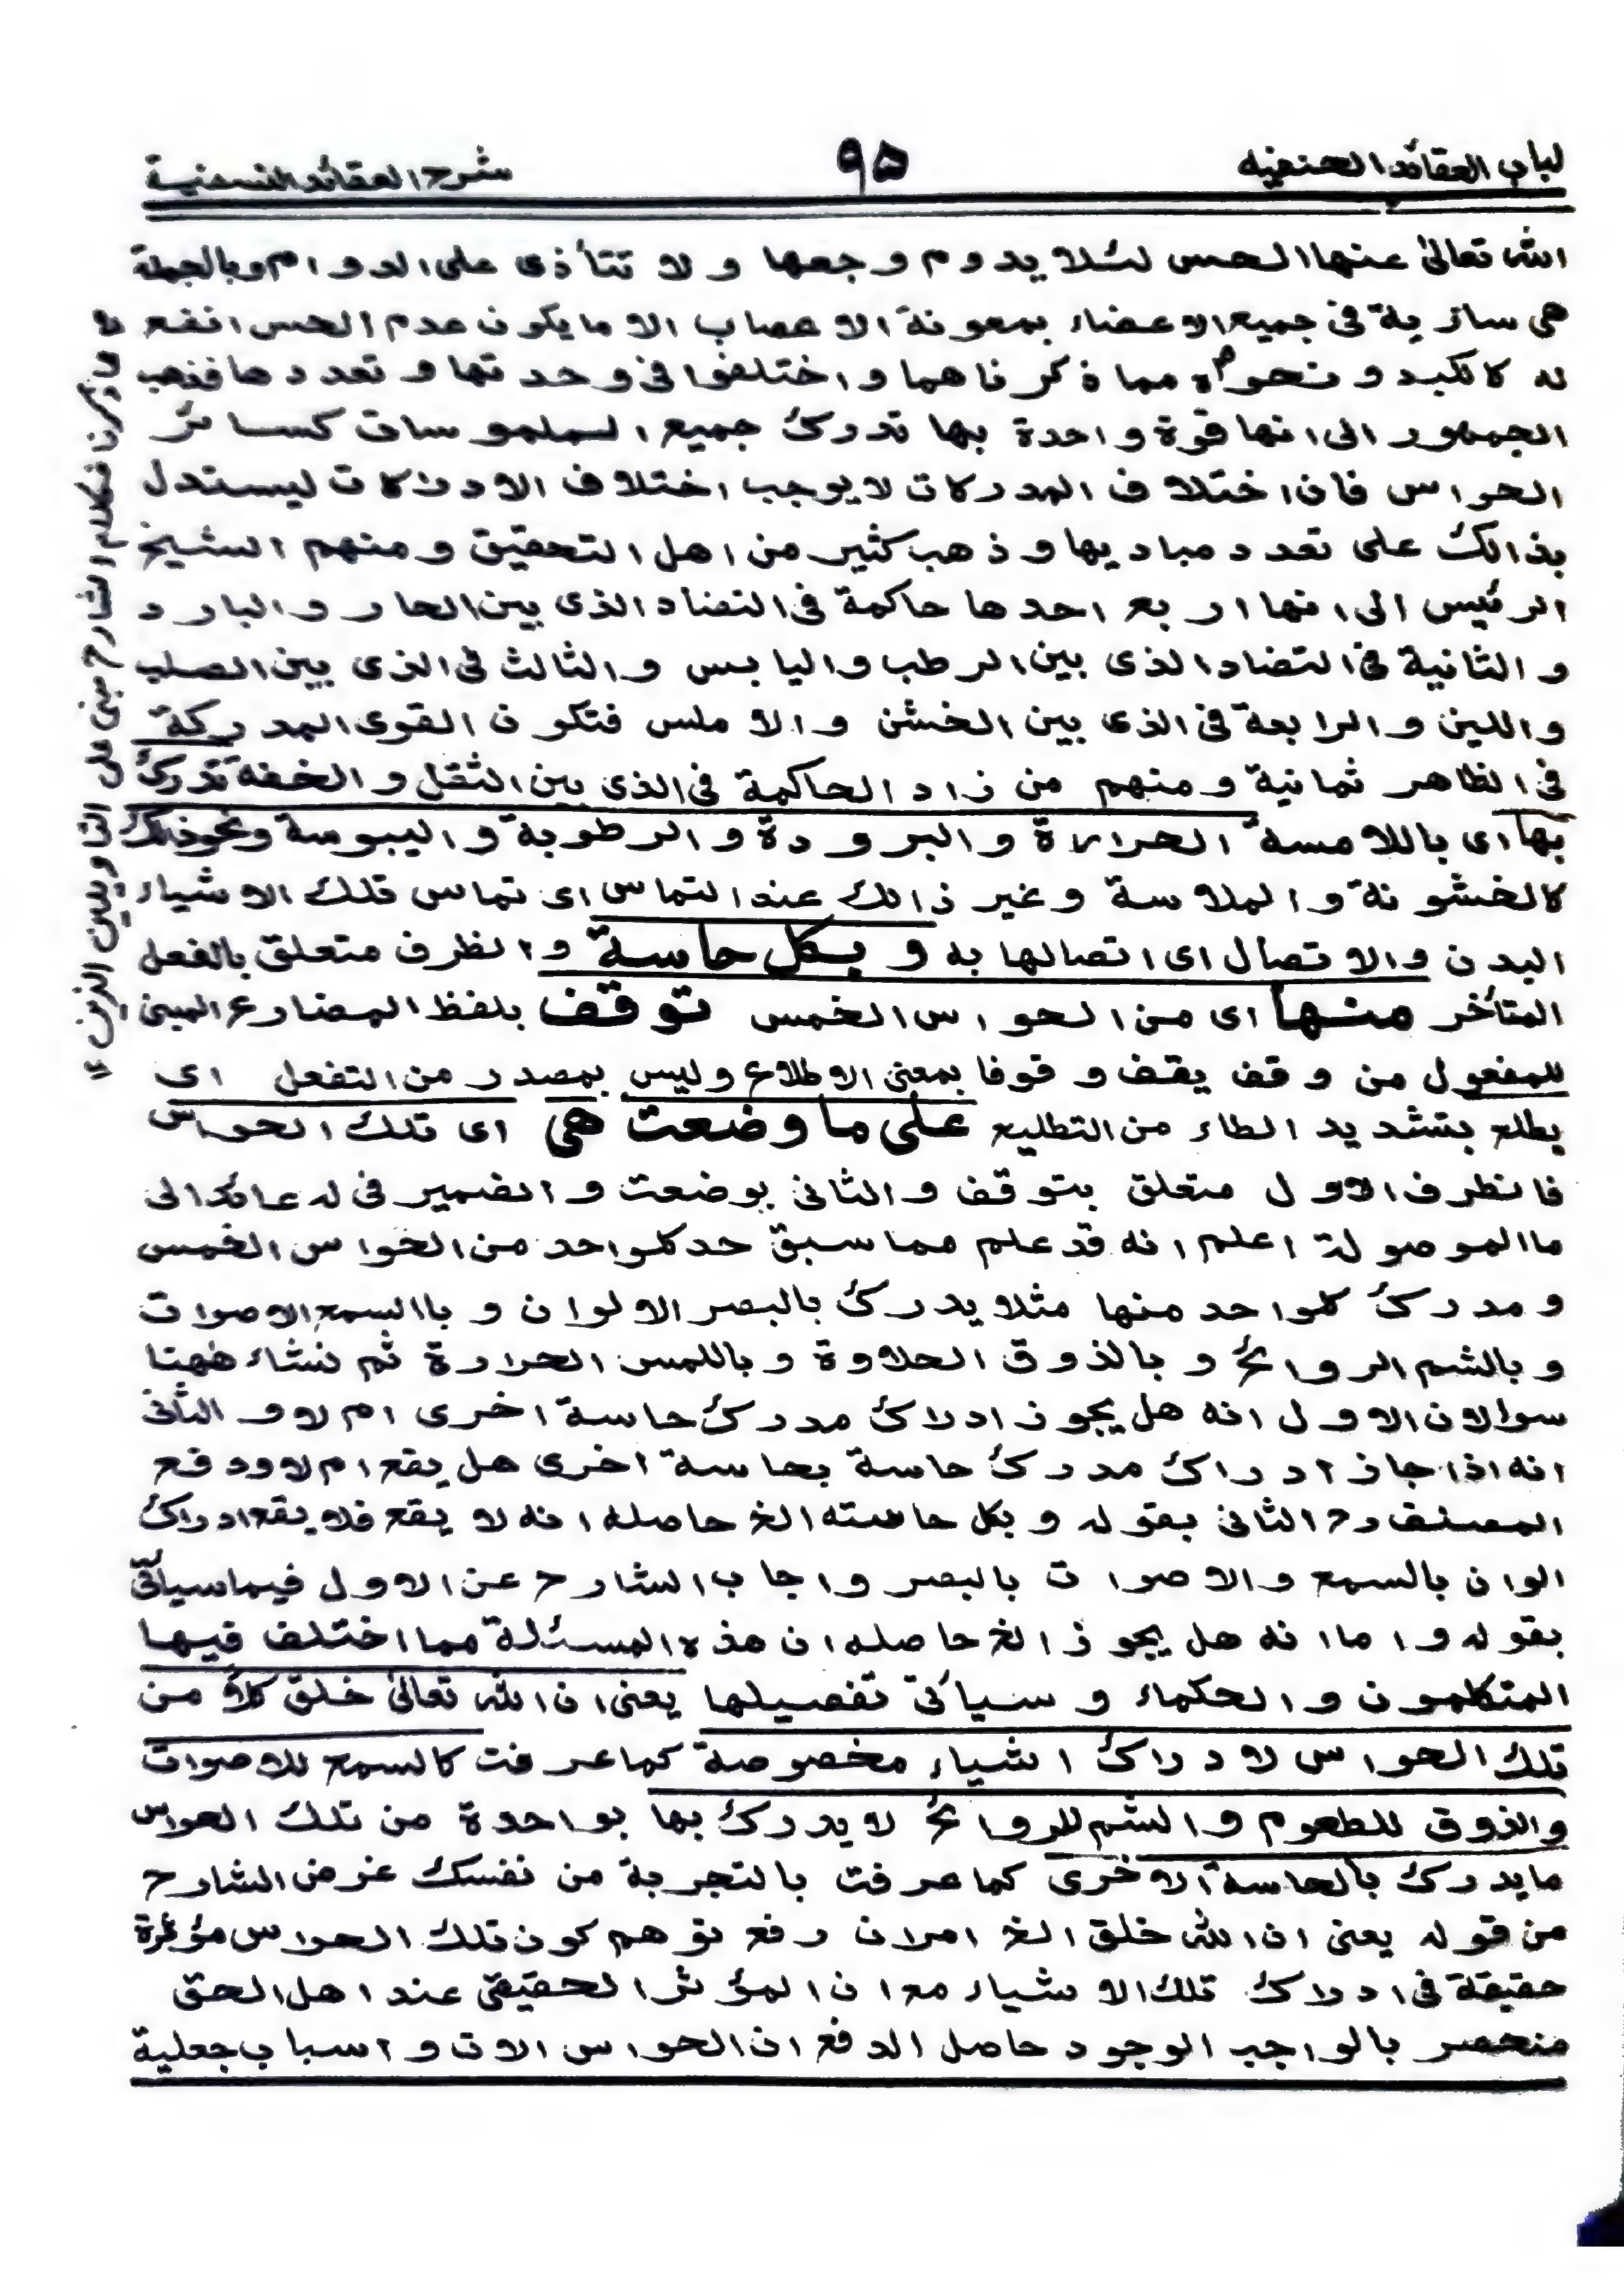 لباب العقائد الحنفيه
۹۵
شرح العقائد النسفية
الله تعالىٰ عنها الحس لئلا يدوم وجعها ولا تتأذى على الدوام وبالجملة
هى سارية فى جميع الاعضاء بمعونة الاعصاب الا ما يكون عدم الحس انفع
له كالكبد ونحوه مما ذكرناهما واختلفوا فى وحدتها وتعددها فذهب
الجمهور الى انها قوة واحدة بها تدرك جميع الملموسات كسائر
الحواس فان اختلاف المدركات لا يوجب اختلاف الادراكات ليستدل
بذالك على تعدد مباديها وذهب كثير من اهل التحقيق ومنهم الشيخ
الرئيس الى انها اربع احدها حاكمة فى التضاد الذى بين الحار والبارد
والثانية فى التضاد الذى بين الرطب واليابس والثالث فى الذى بين الصلب
واللين والرابعة فى الذى بين الخشن والاملس فتكون القوى المدركة
فى الظاهر ثمانية ومنهم من زاد الحاكمة فى الذى بين الثقل والخفة تدرك
بها اى باللامسة الحرارة والبرودة والرطوبة واليبوسة ونحوذلك
كالخشونة والملاسة وغير ذالك عند التماس اى تماس تلك الاشياء
البدن والاتصال اى اتصالها به و بكل حاسة والظرف متعلق بالفعل
المتأخر منها اى من الحواس الخمس توقف بلفظ المضارع المبنى
للمفعول من وقف يقف وقوفا بمعنى الاطلاع وليس بمصدر من التفعل اى
يطلع بتشديد الطاء من التطليع على ما وضعت هى اى تلك الحواس
فالظرف الاول متعلق بتوقف والثانى بوضعت والضمير فى له عائد الى
ما الموصولة اعلم انه قد علم مما سبق حد كلواحد من الحواس الخمس
ومدرك كلواحد منها مثلا يدرك بالبصر الالوان وباالسمع الاصوات
وبالشم الروائح وبالذوق الحلاوة وباللمس الحرارة ثم نشاء ههنا
سوالان الاول انه هل يجوز ادراك مدرك حاسة اخرى ام لا والثانى
انه اذا جاز ادراك مدرك حاسة بحاسة اخرى هل يقع ام لا ودفع
المصنف رح الثانى بقوله وبكل حاسته الخ حاصله انه لا يقع فلا يقع ادراك
الوان بالسمع والاصوات بالبصر واجاب الشارح عن الاول فيما سيأتى
بقوله واما انه هل يجوز الخ حاصله ان هذه المسئلة مما اختلف فيها
المتكلمون والحكماء وسيأتى تفصيلها يعنى ان الله تعالىٰ خلق كلاً من
تلك الحواس لادراك اشياء مخصوصة كما عرفت كالسمع للاصوات
والذوق للطعوم والشم للروائح لا يدرك بها بواحدة من تلك الحواس
ما يدرك بالحاسة الاخرى كما عرفت بالتجربة من نفسك غرض الشارح
من قوله يعنى ان الله خلق الخ امران رفع توهم كون تلك الحواس مؤثرة
حقيقة فى ادراك تلك الاشياء مع ان المؤثر الحقيقى عند اهل الحق
منحصر بالواجب الوجود حاصل الدفع ان الحواس الات واسباب جعلية
فكلام الشارح مبنى على